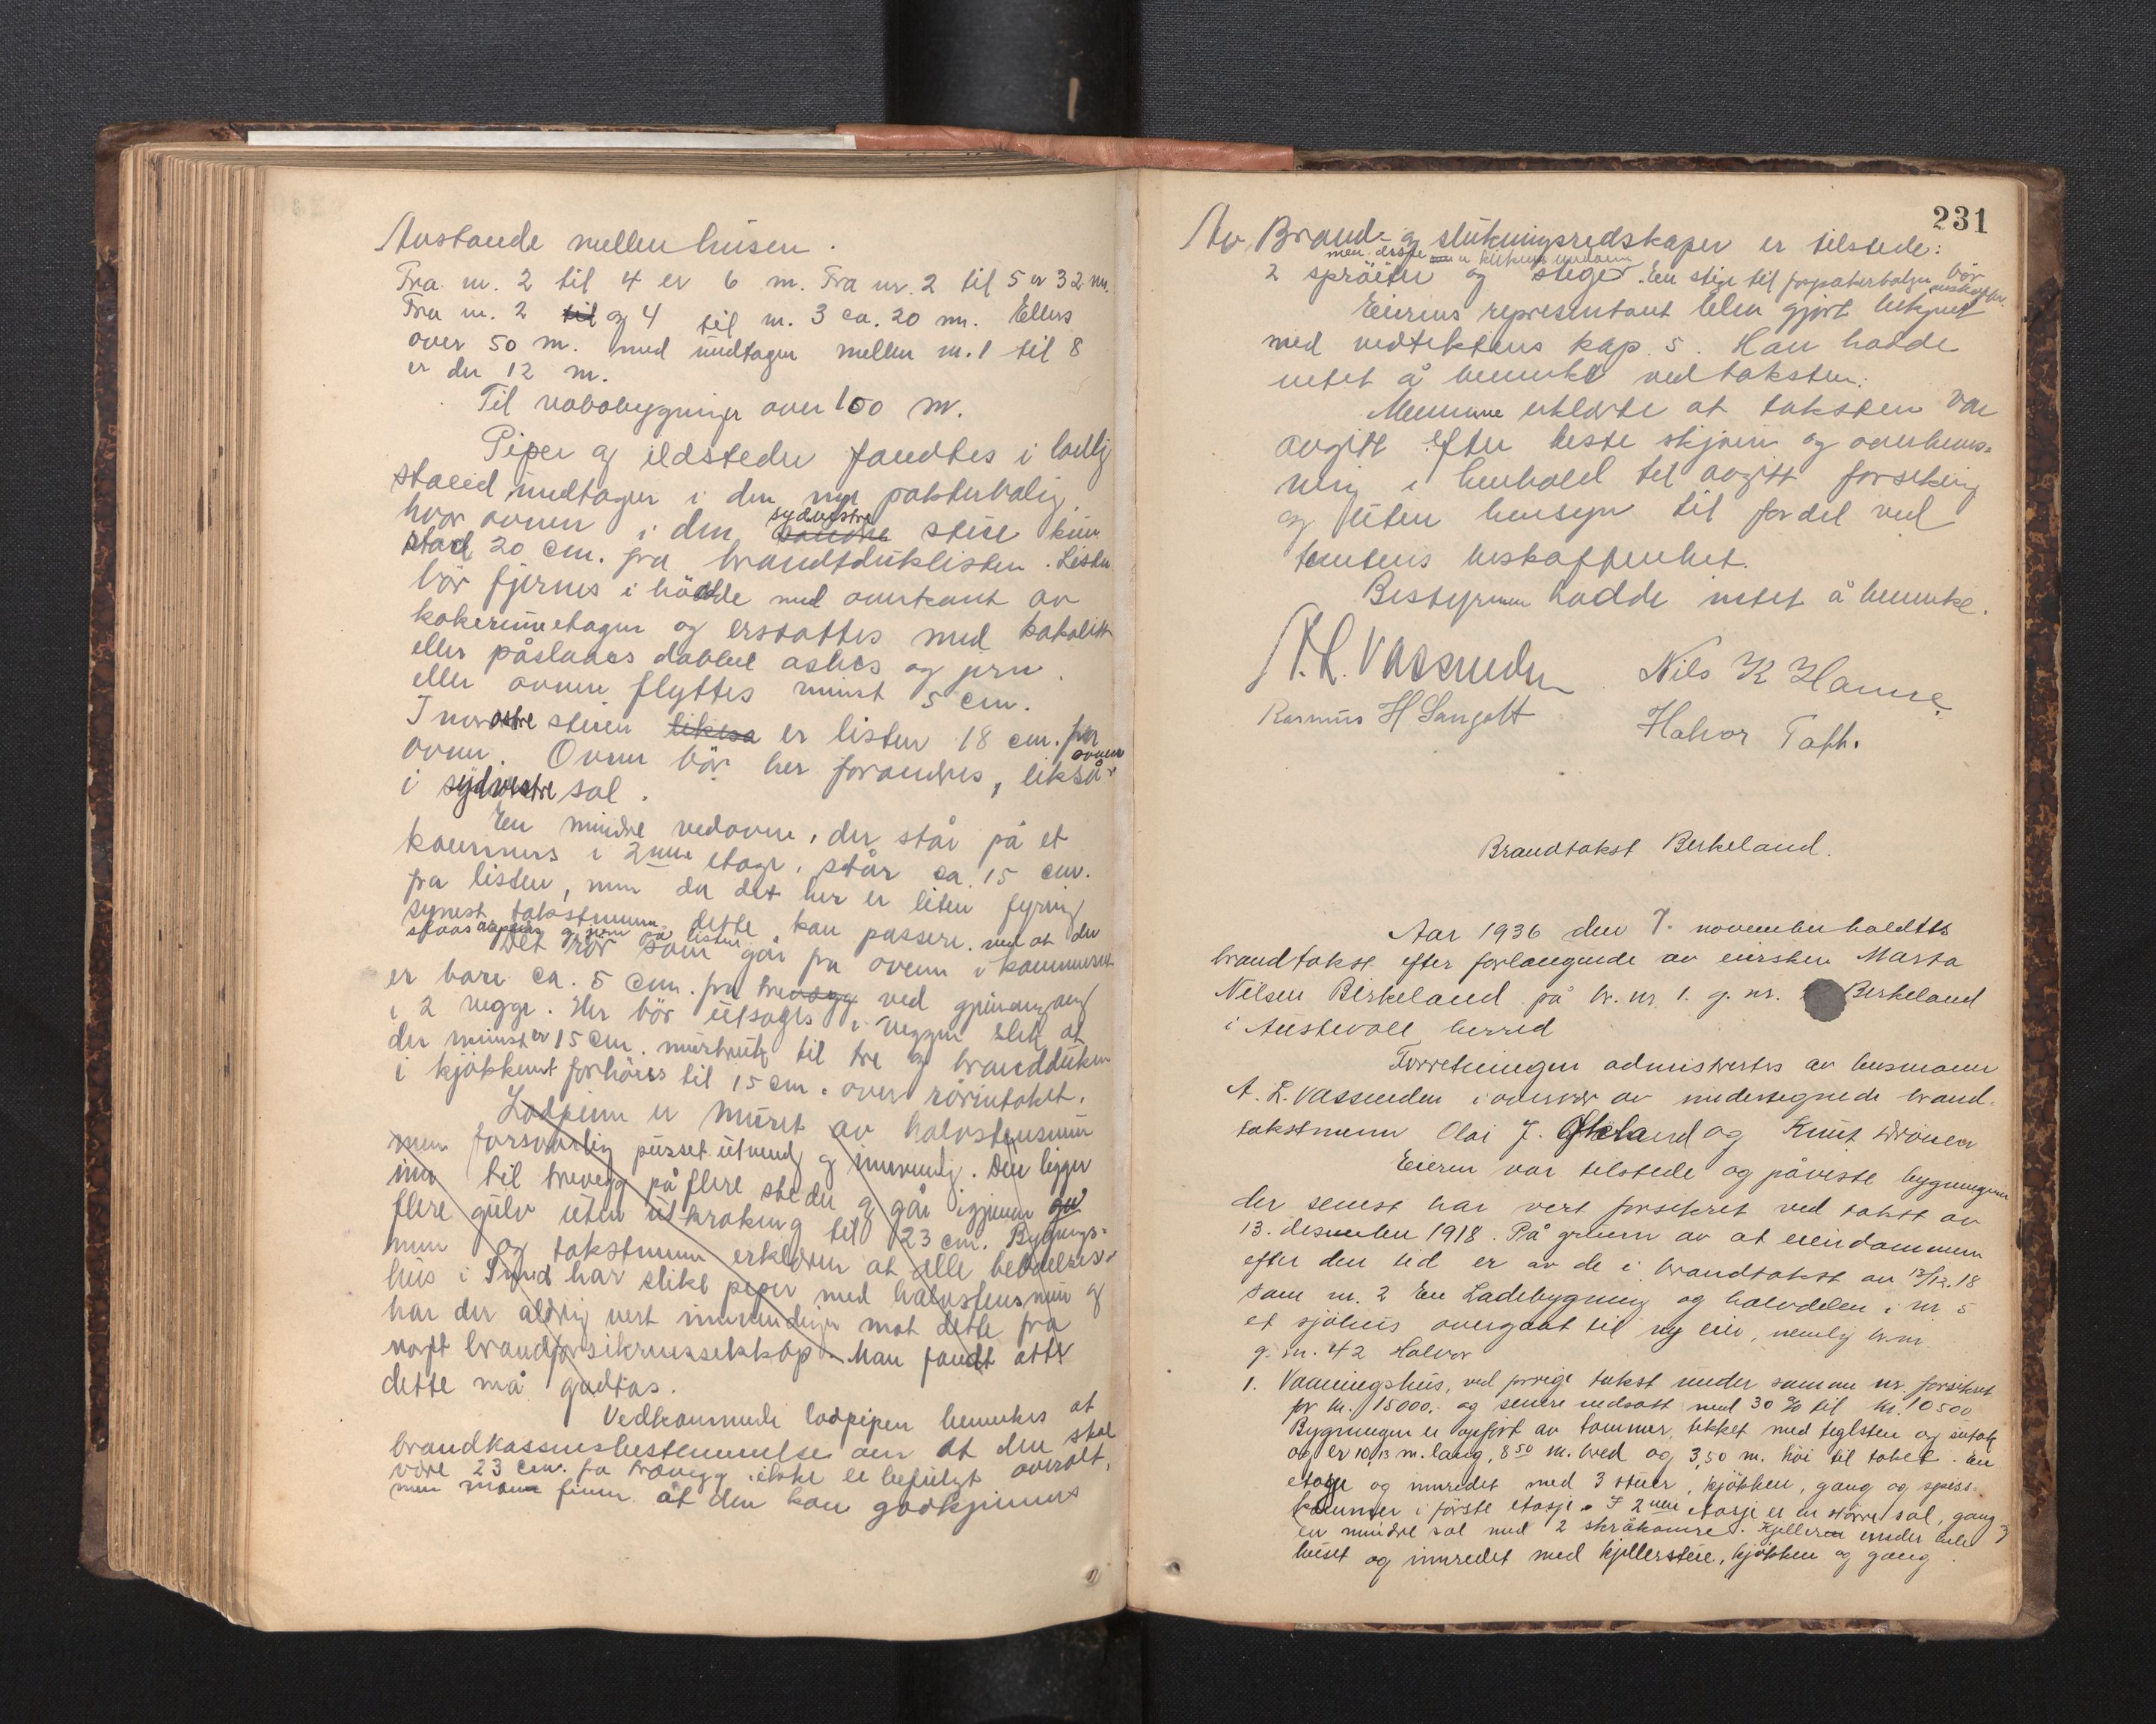 Avstande mellem husen.
Fra nr. 2 til 4 er 6 m. Fra nr. 2 til 5 er 32 m.
Fra nr. 2 til og 4 til nr. 3 ca. 20 m. Ellers
over 50 m. med undtagen mellem nr. 1 til 8
er der 12 m.
Til nabobygninger over 100 m.
Piper og ildsteder fandtes i lovlig
stand undtagen i den nye pakterbolig,
hvor ovnen i den sydvestre stue kun
stod 20 cm. fra brandtduklisten. Listen
bör fjernes i höide med overkant av
kokerumetagen og erstattes med
eller påslaaes dobbel asbes og jern.
eller ovnen flyttes minst 5 cm.
I norostre stuen liksa er listen 18 cm. fra
ovnen. Ovnen bör her forandres, likså ovnen
i sydvestre sal.
En mindre vedovn, der står på et
kammers i 2nen etage, står ca. 15 cm.
fra listen, men da det her er liten fyring
synest takstmenn dette kan passere. ved at der
slaas aspes og jern på listen
Det rör som går fra ovnen i kammerset
er bare ca. 5 cm. fra trevegg ved gjennemgang
i 2 vegge. Her bör utsages i veggen slik at
der minst er 15 cm. til tre og brandduken
i kjökkenet forhöies til 15 cm. over rörintaket.
Lodpipen er muret av halvstensmur
men forsvarlig pusset utvendig og innvendig. Den ligger
inn til trevegg på flere steder og går igjenem
flere gulv uten utkraking til 23 cm. Bygnings-
menn og takstmenn erklærer at alle beboelses-
hus i Sund har slike piper med halvstensmur og
har der aldrig vert innvendinger mot dette fra
norsk brandforsikrinsselskap. Man fandt atter
dette må godtas.
Vedkommende lodpipen bemerkes at
brandkassensbestemmelse om at den skal
være 23 cm. fra trævegg ikke er befulgt overalt,
men man finner at den kan godkjennes
231
Av Brand- og slukningsredskaper er tilstede:
2 spröiter og stiger. En stige til forpakterboligen bör
Eierens representant blev gjort bekjent
med vedtektens kap. 5. Han hadde
intet å bemerke ved taksten.
Mennene erklærte at taksten var
avgitt efter beste skjønn og overbevis-
ning i henhold til avgitt forsikring
og uten hensyn til fordel ved
tomtens beskaffenhet.
Bestyreren hadde intet å bemerke.
A. L. Vassenden Nils K Hanne
Rasmus H Sangolt Halvor Toft.
Brandtakst Berkeland.
Aar 1936 den 7. november holdtes
brandtakst efter forlangende av eiersken Marta
Nilsen Birkeland på br. nr 1. g. nr. Berkeland
i Austevoll herred
Forretningen admistrertes av lensmann
A. L. Vassenden i overvær av undertegnede brand-
takstmenn Olai J. Økland og Knut Drönen
Eieren var tilstede og påviste bygningene
der senest har vert forsikret ved takst av
13. desember 1918. På grunn av at eiendommen
efter den tid er av de i brandtakst av 13/12.18
som nr. 2 En Ladebygning og halvdelen i nr 5
et sjöhus overgaat til ny eier, nemlig br. nr
g. nr. 42 Halvor
1. Vaaningshus, ved forrige takst under samme nr forsikret
for kr. 15000. og senere nedsatt med 30 % til kr. 10500
Bygningen er opført av tømmer, tekket med teglsten og sutak
og er 10,13 m. lang, 8,50 m. bred og 3,50 m. høi til taket. En
etage og innredet med 3 stuer, kjökken, gang og spiss-
kammer i förste etasje. I 2nen etasje er en större sal, gang
en mindre sal med 2 skråkamre. Kjelleren under hele
huset og innredet med kjellerstue, kjökken og gang